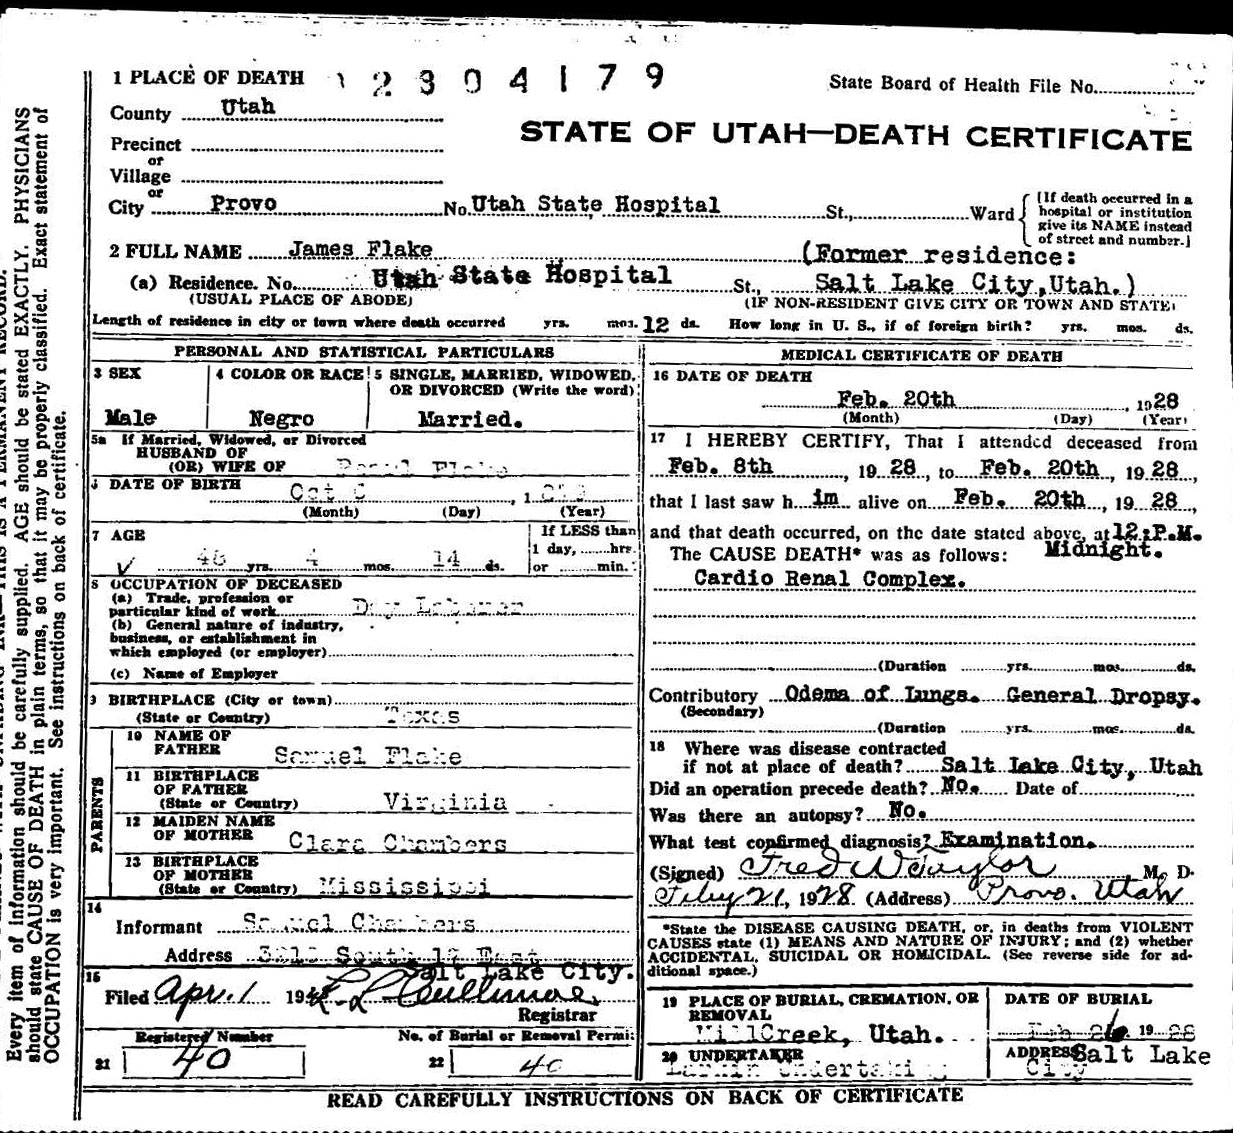 1 PLACE OF DEATH 12304179 State Board of Health File No.
County Utah
STATE OF UTAH—DEATH CERTIFICATE
Precinct
or
Village
or
City Provo No. Utah State Hospital St., Ward
(If death occurred in a
hospital or institution
give its NAME instead
of street and number.)
2 FULL NAME James Flake (Former residence:
(a) Residence. No. Utah State Hospital St., Salt Lake City, Utah.)
(USUAL PLACE OF ABODE) (IF NON-RESIDENT GIVE CITY OR TOWN AND STATE)
Length of residence in city or town where death occurred yrs. mos. 12 ds. How long in U. S., if of foreign birth? yrs. mos. ds.
PERSONAL AND STATISTICAL PARTICULARS
3 SEX
Male
4 COLOR OR RACE
Negro
5 SINGLE, MARRIED, WIDOWED,
OR DIVORCED (Write the word)
Married.
5a If Married, Widowed, or Divorced
HUSBAND OF
(OR) WIFE OF Flake
DATE OF BIRTH Oct , 1
(Month) (Day) (Year)
7 AGE If LESS than
1 day, hrs.
48 yrs. 4 mos. 14 ds. or min.
8 OCCUPATION OF DECEASED
(a) Trade, profession or
particular kind of work Day Laborer
(b) General nature of industry,
business, or establishment in
which employed (or employer)
(c) Name of Employer
9 BIRTHPLACE (City or town)
(State or Country) Texas
PARENTS
10 NAME OF
FATHER Samuel Flake
11 BIRTHPLACE
OF FATHER
(State or Country) Virginia
12 MAIDEN NAME
OF MOTHER Clara Chambers
13 BIRTHPLACE
OF MOTHER
(State or Country) Mississippi
14
Informant Samuel Chambers
Address South East
Salt Lake City.
15
Filed Apr. 1 19 Cullimore
Registrar
Registered Number No. of Burial or Removal Permit
21 40 22 40
MEDICAL CERTIFICATE OF DEATH
16 DATE OF DEATH
Feb. 20th , 1928
(Month) (Day) (Year)
17 I HEREBY CERTIFY, That I attended deceased from
Feb. 8th , 1928, to Feb. 20th, 1928,
that I last saw him alive on Feb. 20th, 1928,
and that death occurred, on the date stated above, at 12:P.M.
The CAUSE DEATH* was as follows: Midnight.
Cardio Renal Complex.
(Duration yrs. mos. ds.
Contributory Odema of Lungs. General Dropsy.
(Secondary)
(Duration yrs. mos. ds.
18 Where was disease contracted
if not at place of death? Salt Lake City, Utah
Did an operation precede death? No. Date of
Was there an autopsy? No.
What test confirmed diagnosis? Examination.
(Signed) Fred W Taylor M. D.
Feby 21, 1928 (Address) Provo. Utah
*State the DISEASE CAUSING DEATH, or, in deaths from VIOLENT
CAUSES state (1) MEANS AND NATURE OF INJURY; and (2) whether
ACCIDENTAL, SUICIDAL OR HOMICIDAL. (See reverse side for ad-
ditional space.)
19 PLACE OF BURIAL, CREMATION, OR
REMOVAL
MillCreek, Utah.
DATE OF BURIAL
Feb 26 1928
20 UNDERTAKER
Larkin Undertaking
ADDRESS Salt Lake
City
READ CAREFULLY INSTRUCTIONS ON BACK OF CERTIFICATE
Every item of information should be carefully supplied. AGE should be stated EXACTLY. PHYSICIANS
should state CAUSE OF DEATH in plain terms, so that it may be properly classified. Exact statement of
OCCUPATION is very important. See instructions on back of certificate.